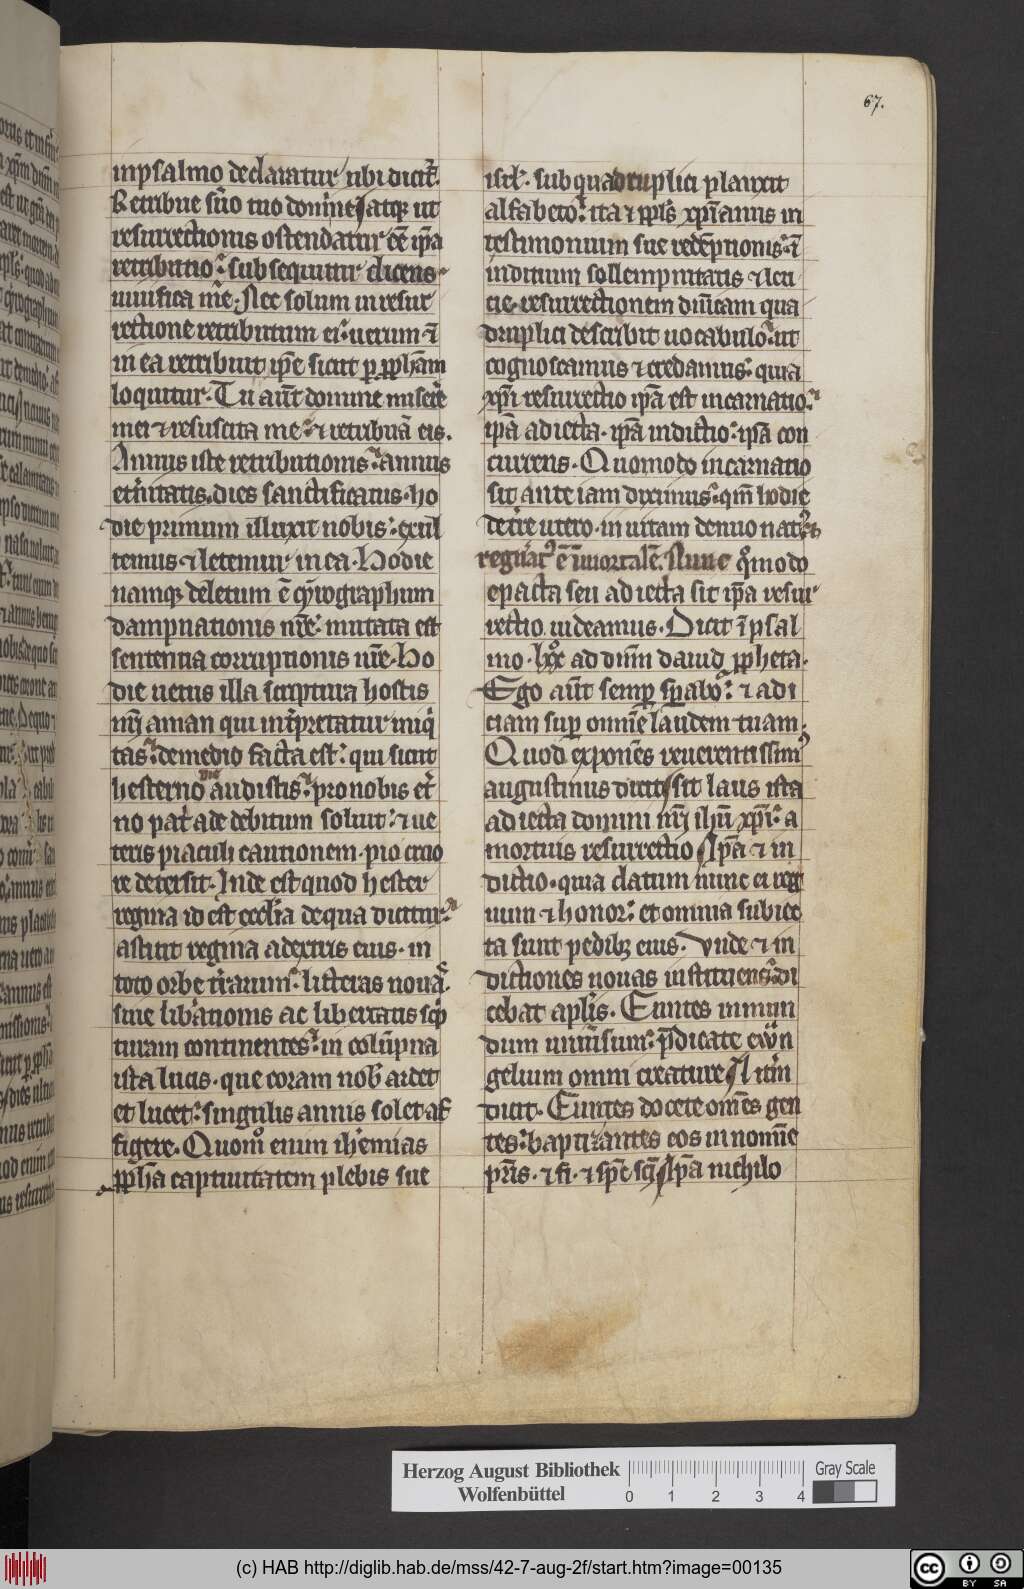 67.
inpsalmo declaratur ubi dicit͛.
Retribue suo tuo domine atq; ut
resurrectionis ostendatur ēē ip̄a
retributio. subsequitur dicens
uiuifica me. Nec solum in resur
rectione retributum ei. uerum ī
in ea retribuit ip̄e sicut p prph̄am
loquitur. Tu aūt domine misere
mei ⁊ resuscita me. ⁊ retribuā eis.
Annus iste retributionis. annus
eternitatis. dies sanctificatus. ho
die primum illuxit nobis. exul
temus ⁊ letemur in ea. Hodie
namq; deletum ē cyrographum
dampnationis nr̄e. mutata est
sententia corruptionis nr̄e. Ho
die uetus illa scriptura hostis
nr̄i aman qui interpretatur iniqi
tas. de medio facta est. qui sicut
hesterno die audistis. pro nobis et͛
no pat͛ ade debitum soluit. ⁊ ue
teris piaculi cautionem. pio cruo
re detersit. Inde est quod hester
regina id est eccl̄ia de qua dicitur.
astitit regina a dextris eius. in
toto orbe t͛rarum. litteras nouas.
siue lib͛ationis ac libertatis sc͛p
turam continentes. in colūpna
ista lucis. que coram nob ardet
et lucet. singulis annis solet af
figere. Quom̊ enim ih͛emias
pph̄a captiuitatem plebis sue
isrl. sub quadruplici planxit
alfabeto. ita ⁊ ppl̄s xp̄ianus in
testimonium sue redēptionis. ī
inditium sollempnitatis ⁊ leti
cie. resurrectionem dn̄icam qua
druplici describit uocabulo. ut
cognoscamus ⁊ credamus. quia
xp̄i resurrectio ip̄a est incarnatio.
ip̄a adiecta. ip̄a indictio. ip̄a con
currens. Quomodo incarnatio
sit ante iam diximus. qm̄ hodie
de t͛re utero. in uitam denuo nat⁹ē
regnat⁹ ē īmortalē. Nunc qͦmodo
epacta seu adiecta sit ip̄a resur
rectio uideamus. Dicit ī psal
mo. lxx ad dn̄m dauid ppheta.
Ego aūt semp sp̄abo. ⁊ adi
ciam sup omnē laudem tuam.
Quod exponēs reuerentissim⁹
augustinus dicit. sit laus ista
adiecta domini nr̄i ih̄u xp̄i. a
mortuis resurrectio. Ip̄a ⁊ in
dictio. quia datum nunc ei reg
num ⁊ honor. et omnia subiec
ta sunt pedib; eius. Vnde ⁊ in
dictiones nouas instituens. di
cebat apl̄is. Euntes in mun
dum uniūsum. p̄dicate ewan
gelium omni creature. Itm̄
dicit. Euntes docete omēs gen
tes. baptizantes eos in nomīe
pr̄is. ⁊ fi. ⁊ sp̄e sc̄i. Ip̄a nichilo
Herzog August Bibliothek
Wolfenbüttel
0 1 2 3 4
Gray Scale
(c) HAB http://diglib.hab.de/mss/42-7-aug-2f/start.htm?image=00135
cc BY SA